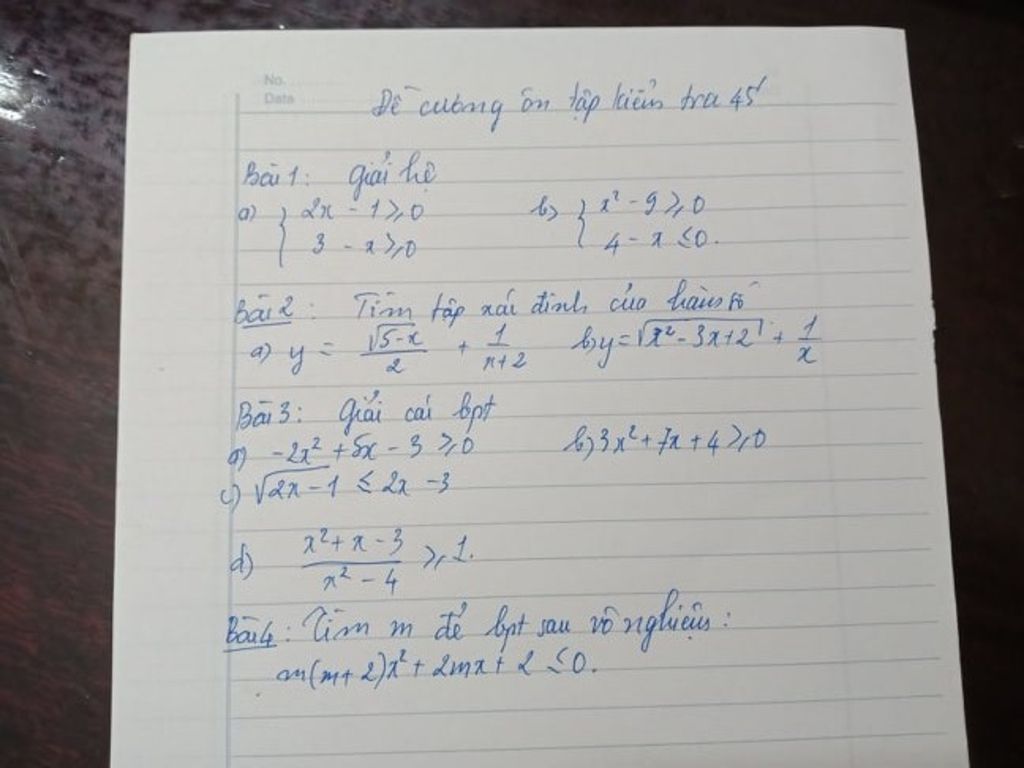 No.
Date
Đề cương ôn tập kiểm tra 45'
Bài 1: Giải hệ
a) { 2x - 1 ≥ 0 b) { x² - 9 ≥ 0
3 - x ≥ 0 4 - x ≤ 0.
Bài 2: Tìm tập xác định của hàm số
a) y = √(5-x)/2 + 1/(x+2) b) y = √(x² - 3x + 2) + 1/x
Bài 3: Giải các bpt
a) -2x² + 5x - 3 ≥ 0 b) 3x² + 7x + 4 ≥ 0
c) √(2x-1) ≤ 2x - 3
d) (x² + x - 3)/(x² - 4) ≥ 1.
Bài 4: Tìm m để bpt sau vô nghiệm:
m(m+2)x² + 2mx + 2 ≤ 0.